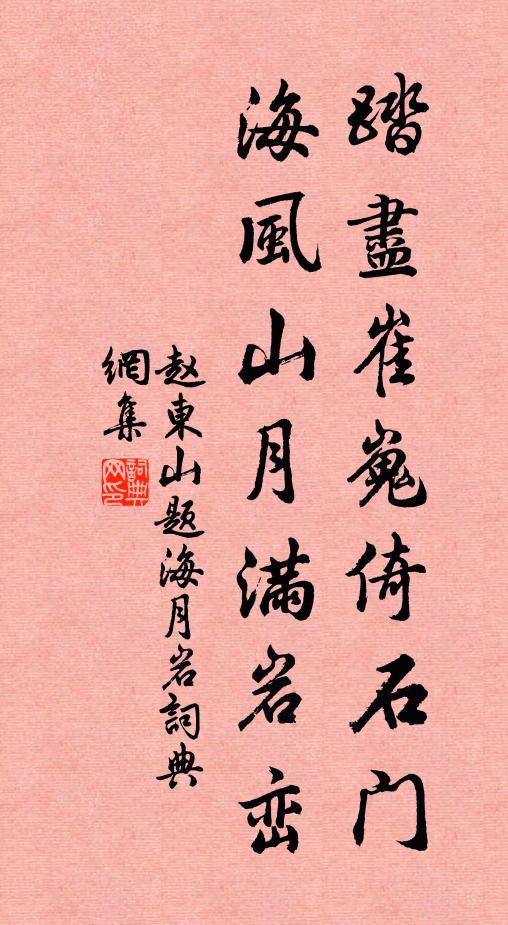 踏盡崔嵬倚石门
海風山月满岩峦
赵東山题海月岩詞典
網集
詞典
网印